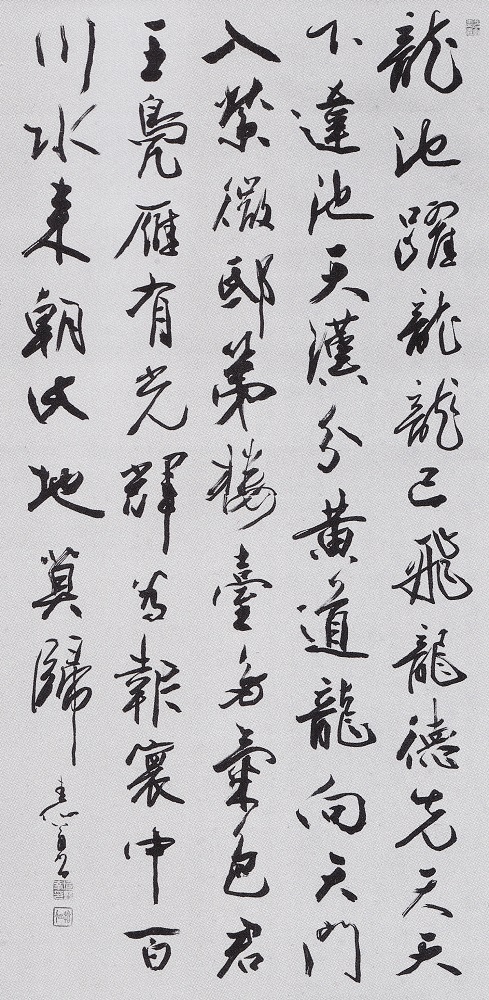 龍池躍龍龍已飛龍德先天天
不違池天漢分黃道龍向天門
入紫微邸第樓臺多氣色君
王鳧雁有光輝為報寰中百
川水來朝此地莫歸